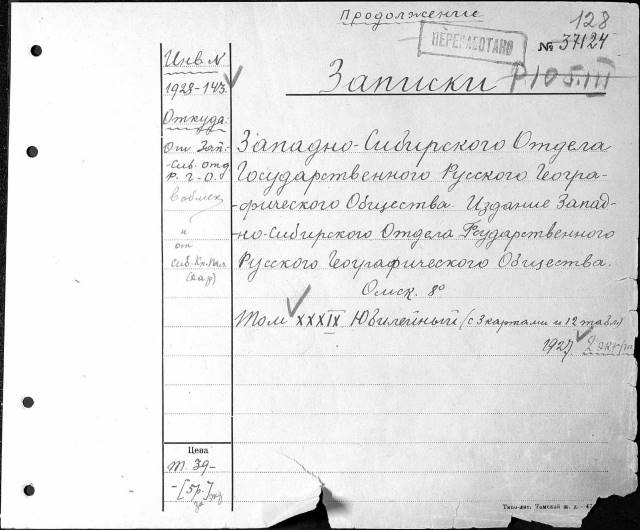 Продолжение
128
ПЕРЕРАБОТАНО
№ 37124
Записки Р105.III
Инв. №
1928-143.
Откуда:
От Зап.-
Сиб. отд
Р. Г. О.
в обмен
и
от
Сиб. Кн.
(дар)
Западно-Сибирского Отдела
Государственного Русского Геогра-
фического Общества. Издание Запад-
но-Сибирского Отдела Государственного
Русского Географического Общества.
Омск. 8°
Том XXXIX Юбилейный (с 3 картами и 12 табл)
1927. 2 экз
Цена
Т. 39-
-[5р.]
Типо-лит. Томской ж. д.